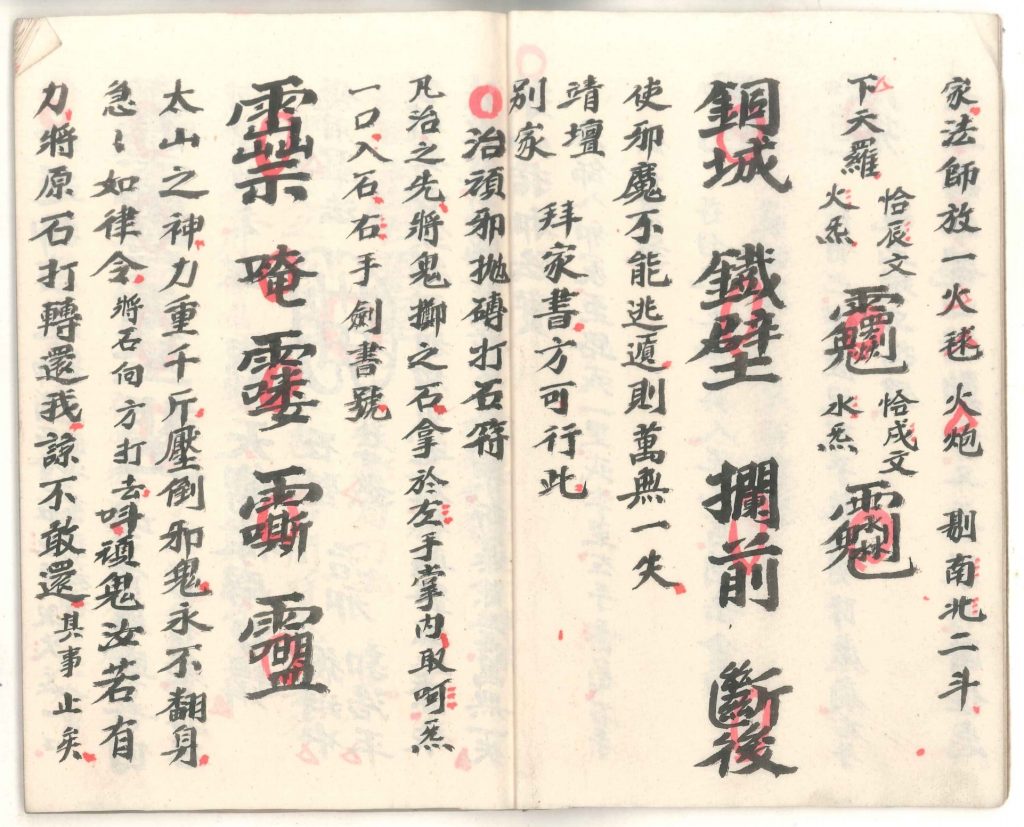 家法師放一火毬火炮 剔南北二斗
下天羅 恰辰文 火炁 恰戌文 水炁
銅城 鐵壁 攔前 斷後
使邪魔不能逃遁則萬無一失
靖壇
別家
拜家書方可行此
治頑邪拋磚打石符
凡治之先將鬼擲之石拿於左手掌內取呵炁
一口入石右手劍書號
唵
太山之神力重千斤壓倒邪鬼永不翻身
急〻如律令將石向方打去呌頑鬼汝若有
力將原石打轉還我諒不敢還其事止矣